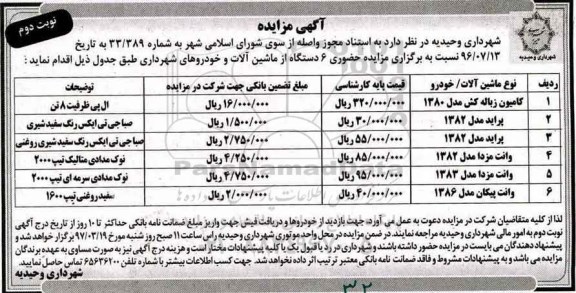 آگهی مزایده
نوبت دوم
شهرداری وحیدیه
شهرداری وحیدیه در نظر دارد به استناد مجوز واصله از سوی شورای اسلامی شهر به شماره ۳۳/۳۸۹ به تاریخ
۹۶/۰۷/۱۳ نسبت به برگزاری مزایده حضوری ۶ دستگاه از ماشین آلات و خودروهای شهرداری طبق جدول ذیل اقدام نماید :
ردیف نوع ماشین آلات/ خودرو قیمت پایه کارشناسی مبلغ تضمین بانکی جهت شرکت در مزایده توضیحات
۱ کامیون زباله کش مدل ۱۳۸۰ ۳۲۰/۰۰۰/۰۰۰ ریال ۱۶/۰۰۰/۰۰۰ ریال ال پی ظرفیت ۸ تن
۲ پراید مدل ۱۳۸۲ ۳۰/۰۰۰/۰۰۰ ریال ۱/۵۰۰/۰۰۰ ریال صباجی تی ایکس رنگ سفید شیری
۳ پراید مدل ۱۳۸۲ ۵۵/۰۰۰/۰۰۰ ریال ۲/۷۵۰/۰۰۰ ریال صباجی تی ایکس رنگ سفید شیری روغنی
۴ وانت مزدا مدل ۱۳۸۲ ۸۵/۰۰۰/۰۰۰ ریال ۴/۲۵۰/۰۰۰ ریال نوک مدادی متالیک تیپ ۲۰۰۰
۵ وانت مزدا مدل ۱۳۸۳ ۹۵/۰۰۰/۰۰۰ ریال ۴/۷۵۰/۰۰۰ ریال نوک مدادی سرمه ای تیپ ۲۰۰۰
۶ وانت پیکان مدل ۱۳۸۶ ۴۰/۰۰۰/۰۰۰ ریال ۲/۰۰۰/۰۰۰ ریال سفید روغنی تیپ ۱۶۰۰
لذا از کلیه متقاضیان شرکت در مزایده دعوت به عمل می آورد، جهت بازدید از خودروها و دریافت فیش جهت واریز مبلغ ضمانت نامه بانکی حداکثر تا ۱۰ روز از تاریخ درج آگهی
نوبت دوم به امور مالی شهرداری وحیدیه مراجعه نمایند. در ضمن مزایده در محل واحد موتوری شهرداری وحیدیه راس ساعت ۱۱ صبح روز شنبه مورخ ۹۷/۰۳/۱۹ برگزار خواهد شد و
پیشنهاد دهندگان می بایست در مزایده حضور داشته باشند و شهرداری در رد یا قبول یک یا کلیه پیشنهادات مختار است و هزینه درج آگهی نیز به صورت مساوی به عهده برندگان
مزایده می باشد و به پیشنهادات مشروط و فاقد ضمانت نامه بانکی معتبر ترتیب اثر داده نخواهد شد. جهت کسب اطلاعات بیشتر با شماره تلفن ۶۵۶۳۶۲۰۰ تماس حاصل نمایید.
شهرداری وحیدیه
۳۲